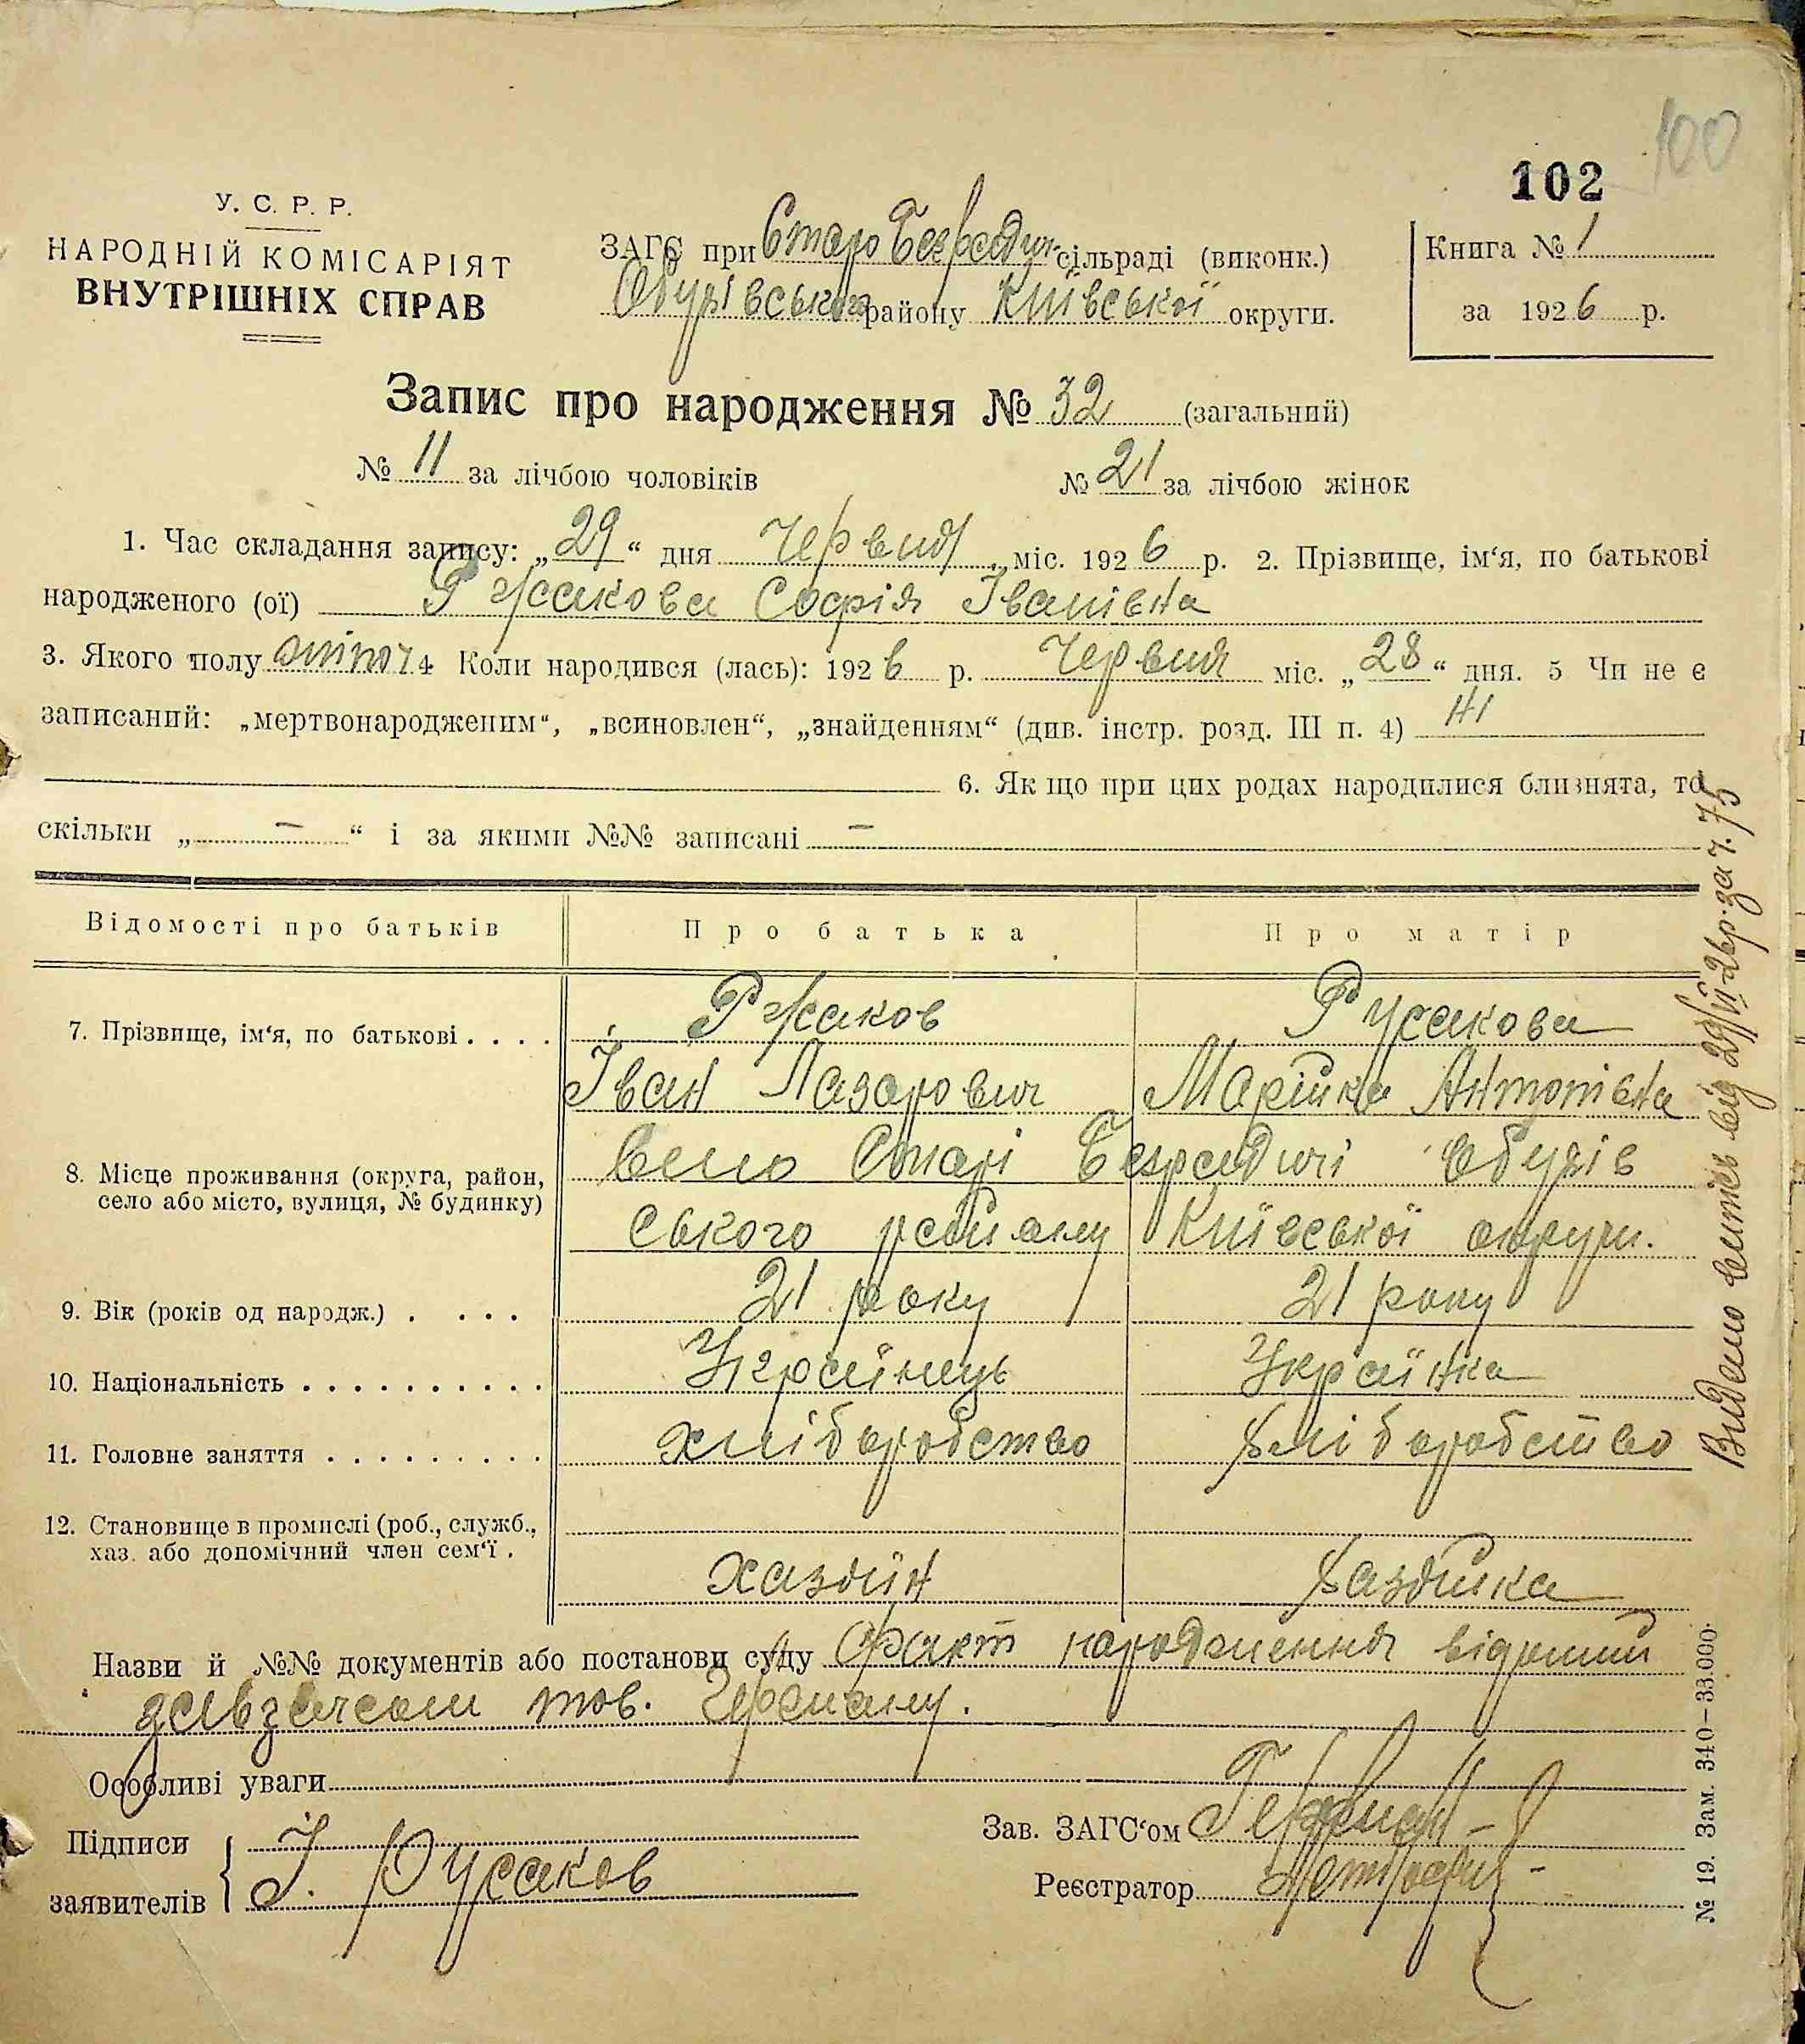 100
102
У. С. Р. Р.
НАРОДНІЙ КОМІСАРІЯТ
ВНУТРІШНІХ СПРАВ
ЗАГС при Старо Безрадич. сільраді (виконк.)
Обухівського району Київської округи.
Книга № 1
за 1926 р.
Запис про народження № 32 (загальний)
№ 11 за лічбою чоловіків № 21 за лічбою жінок
1. Час складання запису: „29“ дня Червня міс. 1926 р. 2. Прізвище, ім‘я, по батькові
народженого (ої) Русакова Софія Іванівна
3. Якого полу жіноч 4 Коли народився (лась): 1926 р. Червня міс. „28“ дня. 5 Чи не є
записаний: „мертвонародженим“, „всиновлен“, „знайденням“ (див. інстр. розд. III п. 4) Ні
6. Як що при цих родах народилися близнята, то
скільки „ – “ і за якими №№ записані –
Відомості про батьків Про батька Про матір
7. Прізвище, ім‘я, по батькові . . . . Русаков Русакова
Іван Лазарович Марійка Антонівна
8. Місце проживання (округа, район, село або місто, вулиця, № будинку) Село Старі Безрадичі Обухів
ського району Київської округи.
9. Вік (років од народж.) . . . . 21 року 21 року
10. Національність . . . . . . . . . . Українець Українка
11. Головне заняття . . . . . . . . . хліборобство хліборобство
12. Становище в промислі (роб., служб.,
хаз. або допомічний член сем‘ї . хазяїн хазяйка
Назви й №№ документів або постанови суду Факт народження відомий
завзагсом тов. Герману.
Особливі уваги
Підписи
заявителів І. Русаков
Зав. ЗАГС‘ом Герман
Реєстратор
Видано витяг від 29/VI-26р. за ч. 75
№ 19. Зам. 340–33.000.